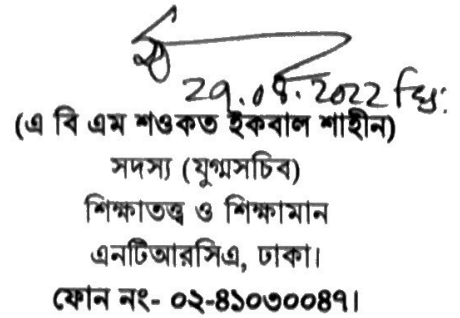 ২৭.০৪.২০২২ খ্রি:
(এ বি এম শওকত ইকবাল শাহীন)
সদস্য (যুগ্মসচিব)
শিক্ষাতত্ত্ব ও শিক্ষামান
এনটিআরসিএ, ঢাকা।
ফোন নং- ০২-৪১০৩০০৪৭।